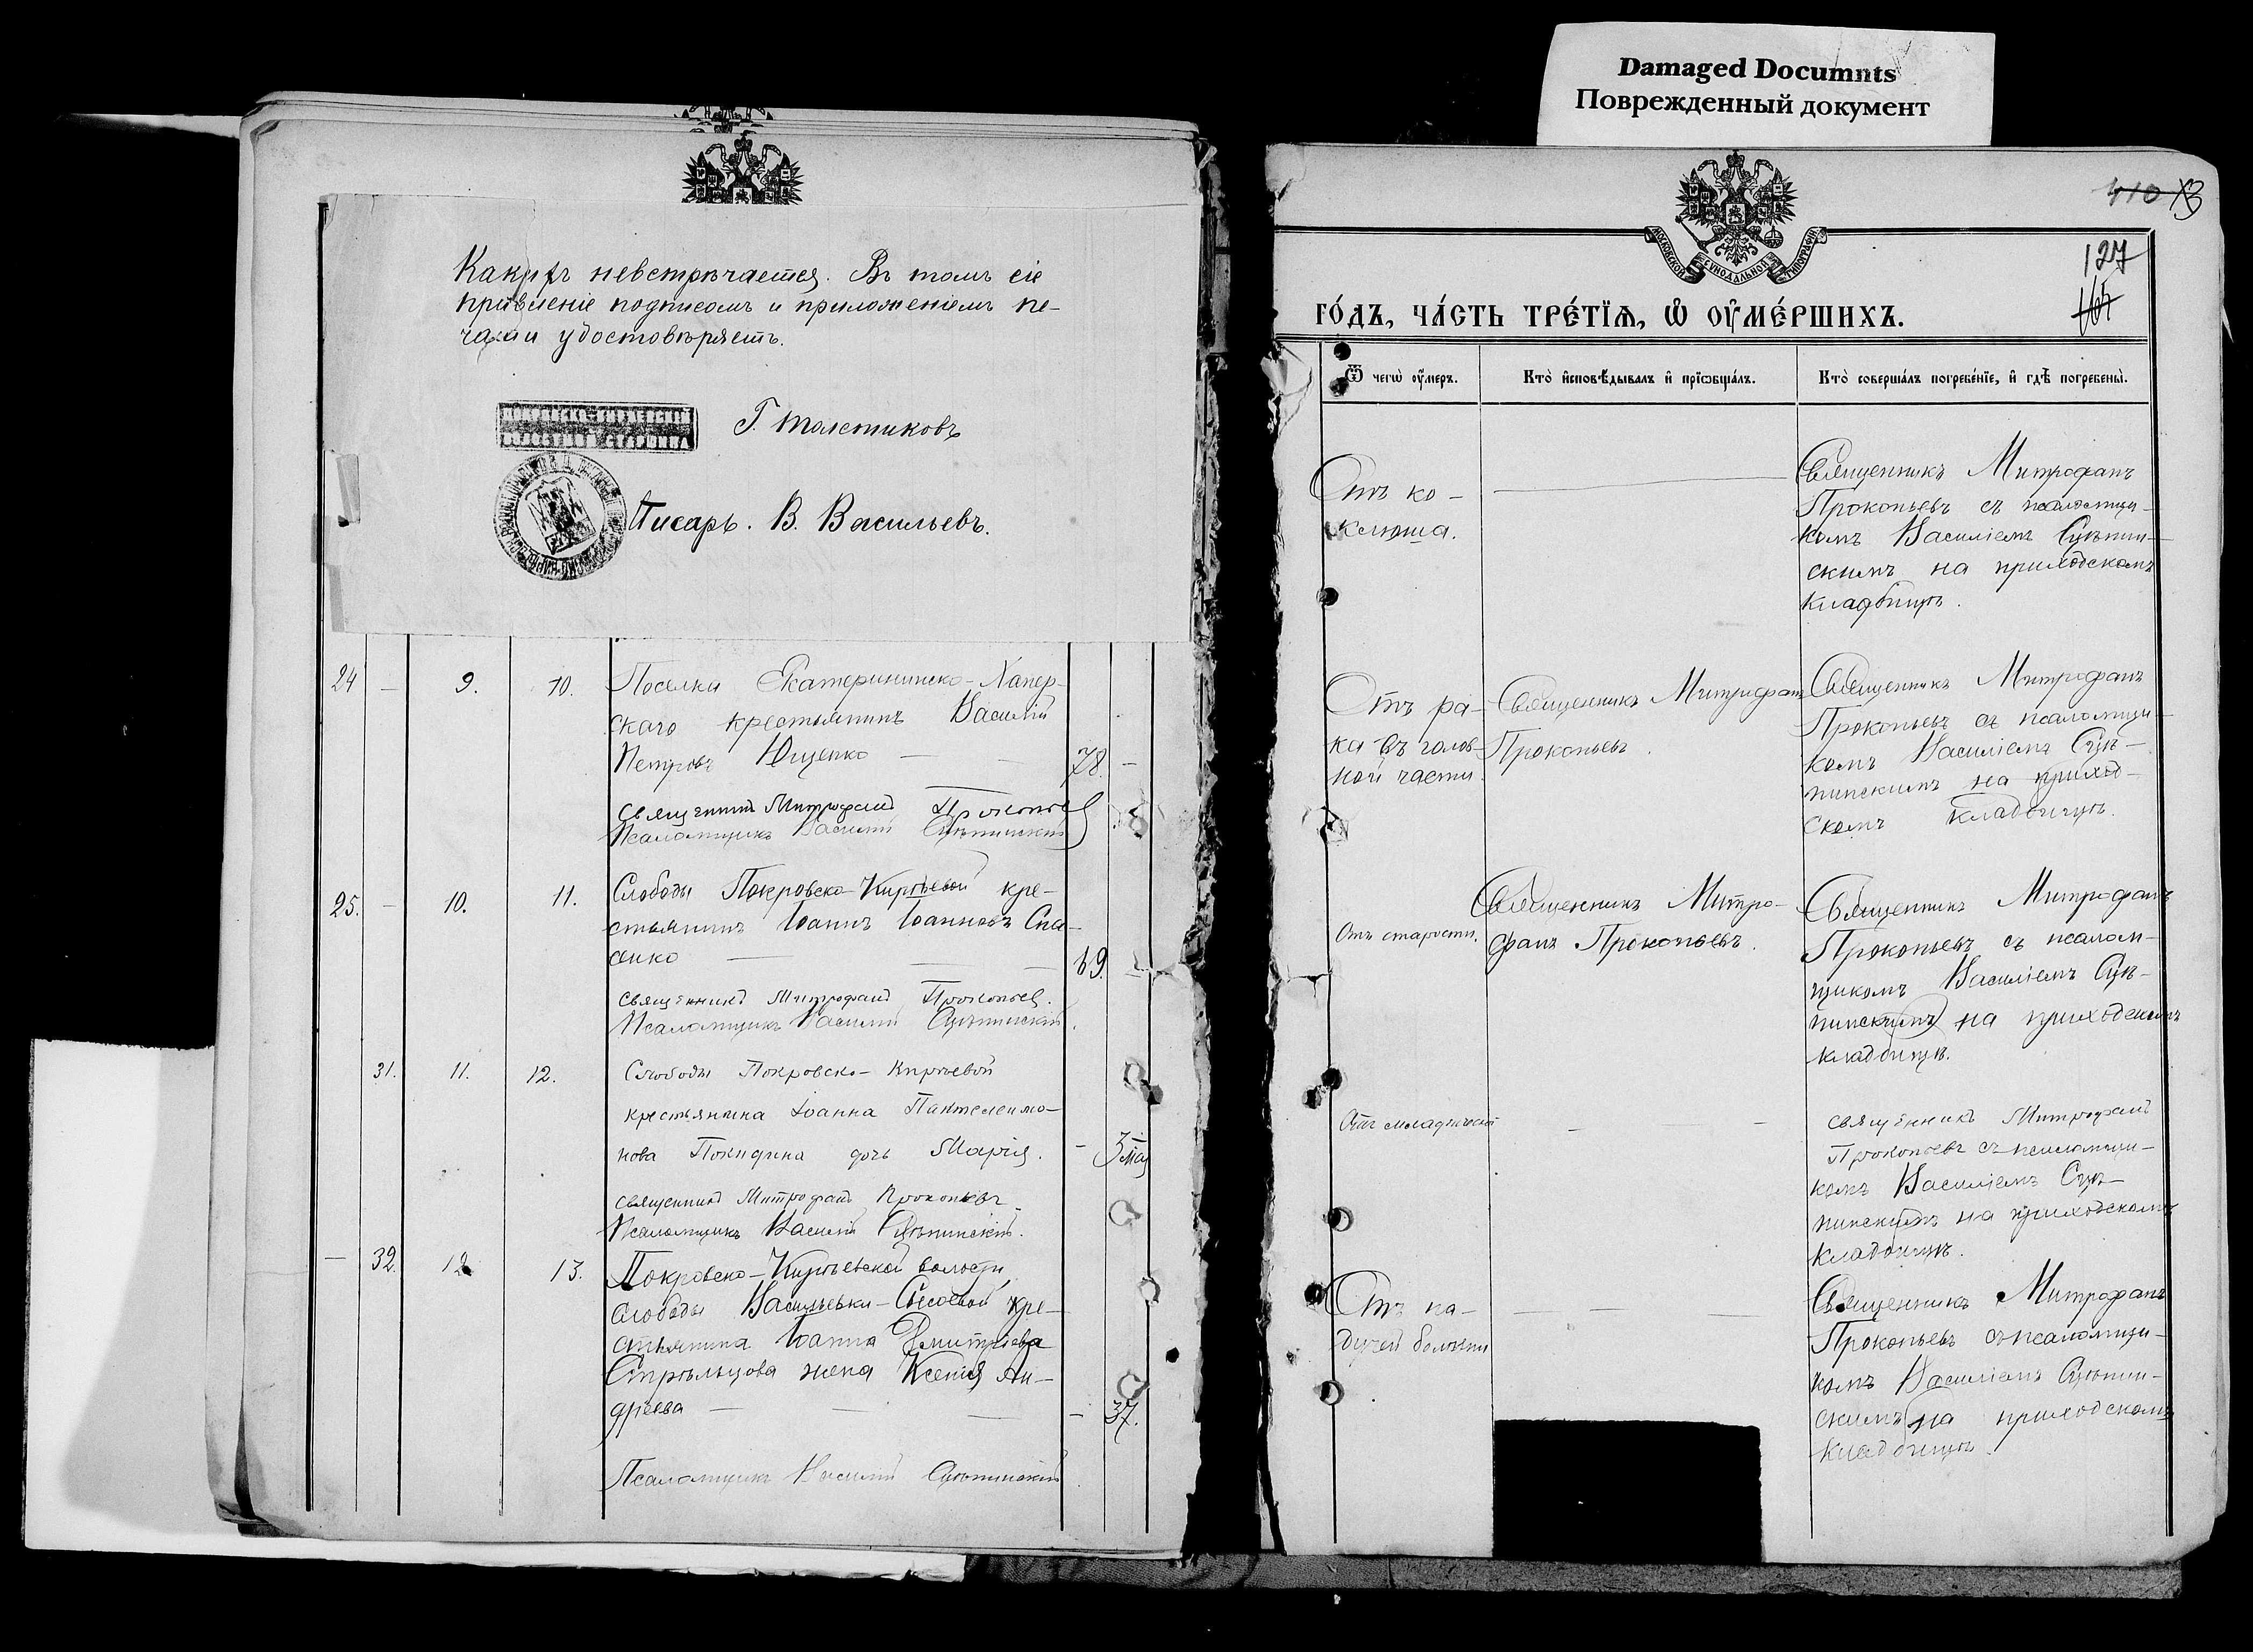 Damaged Documnts
Поврежденный документ
невстрѣчается. Въ томъ сіе
правленіе подписомъ и приложеніемъ пе-
чати удостовѣряетъ.
Г. Толстиковъ
ПОКРОВСКО-КИРѢЕВСКІЙ
ВОЛОСТНОЙ СТАРШИНА
Писарь. В. Васильевъ.
24 — 9. 10. Поселка Екатерининско-Хапер-
скаго крестьянинъ Василій
Петровъ Ющенко — — 78. —
Священникъ Митрофанъ Прокопьев
Псаломщикъ Василій Сцѣпинскій
25. — 10. 11. Слободы Покровско-Кирѣевой кре-
стьянинъ Іоаннъ Іоанновъ Спа-
сенко — — — 69. —
Священникъ Митрофанъ Прокопьев.
Псаломщикъ Василій Сцѣпинскій.
31. 11. 12. Слободы Покровско-Кирѣевой
крестьянина Іоанна Пантелеимо-
нова дочь Марія. —
Священникъ Митрофанъ Прокопьевъ
Псаломщикъ Василій Сцѣпинскій.
— 32. 12 13. Покровско-Кирѣевской волости
слободы Васильевки-Сысоевой кре-
стьянина Іоанна Дмитріева
Стрѣльцова жена Ксенія Ан-
дреева — — — — 37.
Псаломщикъ Василій Сцѣпинскій
410
127
МОСКОВСКОЙ СѴНОДАЛЬНОЙ ТИПОГРАФІИ
ГО́ДЪ, ЧА́СТЬ ТРЕ́ТІѦ, Ѡ ОУ҆МЕ́РШИХЪ.
Ѿ чегѡ оу҆́меръ. Кто̀ и҆сповѣ́дывалъ и҆ прїѡбща́лъ. Кто̀ соверша́лъ погребе́нїе, и҆ гдѣ̀ погребены̀.
Отъ ко-
клюша.
—
Священникъ Митрофанъ
Прокопьевъ съ псаломщи-
комъ Василіемъ Сцѣпин-
скимъ на приходскомъ
кладбищѣ.
Отъ ра-
ка въ голов-
ной части.
Священникъ Митрофанъ
Прокопьевъ.
Священникъ Митрофанъ
Прокопьевъ съ псаломщи-
комъ Василіемъ Сцѣ-
пинскимъ на приход-
скомъ кладбищѣ.
Отъ старости.
Священникъ Митро-
фанъ Прокопьевъ.
Священникъ Митрофанъ
Прокопьевъ съ псалом-
щикомъ Василіемъ Сцѣ-
пинскимъ на приходскомъ
кладбищѣ.
Отъ младенческой
— —
Священникъ Митрофанъ
Прокопьевъ съ псаломщи-
комъ Василіемъ Сцѣ-
пинскимъ на приходскомъ
кладбищѣ.
Отъ па-
дучей болѣзни
— — —
Священникъ Митрофанъ
Прокопьевъ съ псаломщи-
комъ Василіемъ Сцѣпин-
скимъ на приходскомъ
кладбищѣ.